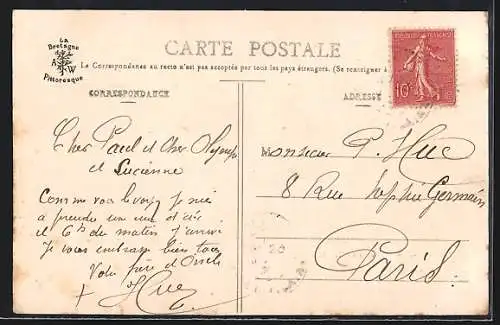 La
Bretagne
A W
Pittoresque
CARTE POSTALE
La Correspondance au recto n'est pas acceptée par tous les pays étrangers. (Se renseigner à
CORRESPONDANCE
ADRESSE
10c
Cher Paul et cher
et Lucienne
Comme vous le voyez je
a prendre un
6h du matin
Je vous embrasse bien tous
Votre d'Oncle
Huc
Monsieur P. Huc
8 Rue Sophie Germain
Paris.